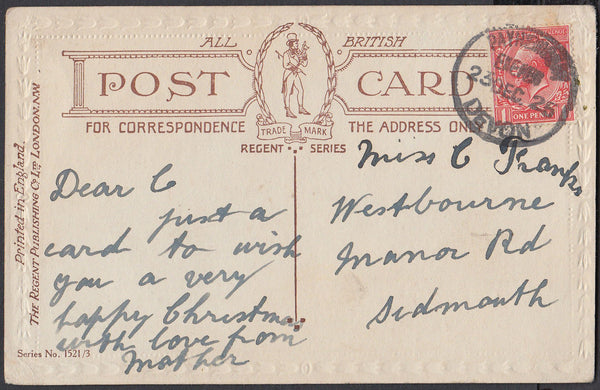 ALL BRITISH
POST CARD
FOR CORRESPONDENCE THE ADDRESS ON
TRADE MARK
REGENT SERIES
Printed in England.
THE REGENT PUBLISHING Co LTD LONDON. N.W.
Series No. 1521/3
Dear C
just a
card to wish
you a very
happy Christmas
with love from
Mother
Miss C Franks
Westbourne
Manor Rd
Sidmouth
23 DEC 2
DEVON
ONE PENNY